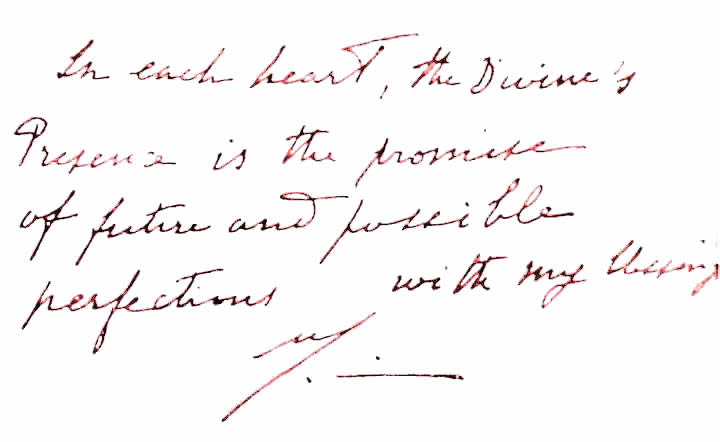 In each heart, the Divine's
Presence is the promise
of future and possible
perfections
with my blessings